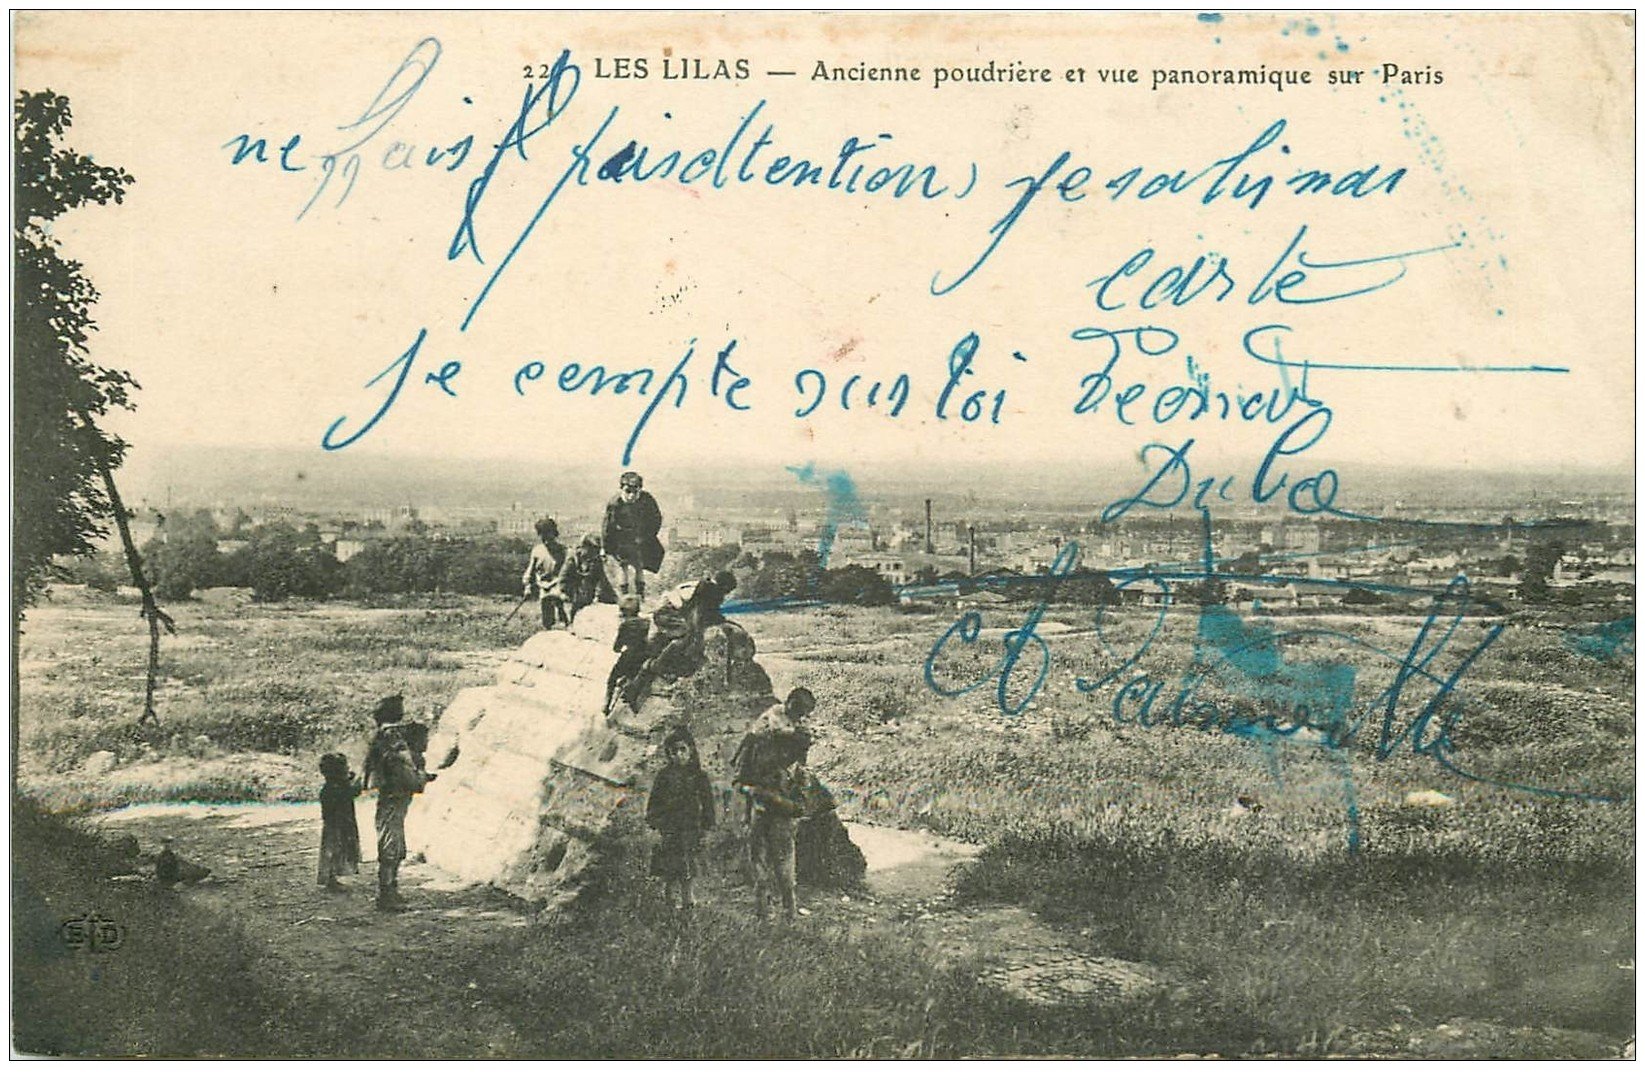 22 LES LILAS — Ancienne poudrière et vue panoramique sur Paris
ne fais pas dtention, je sali mas
carte
je compte sur toi
Dubo
et
ED